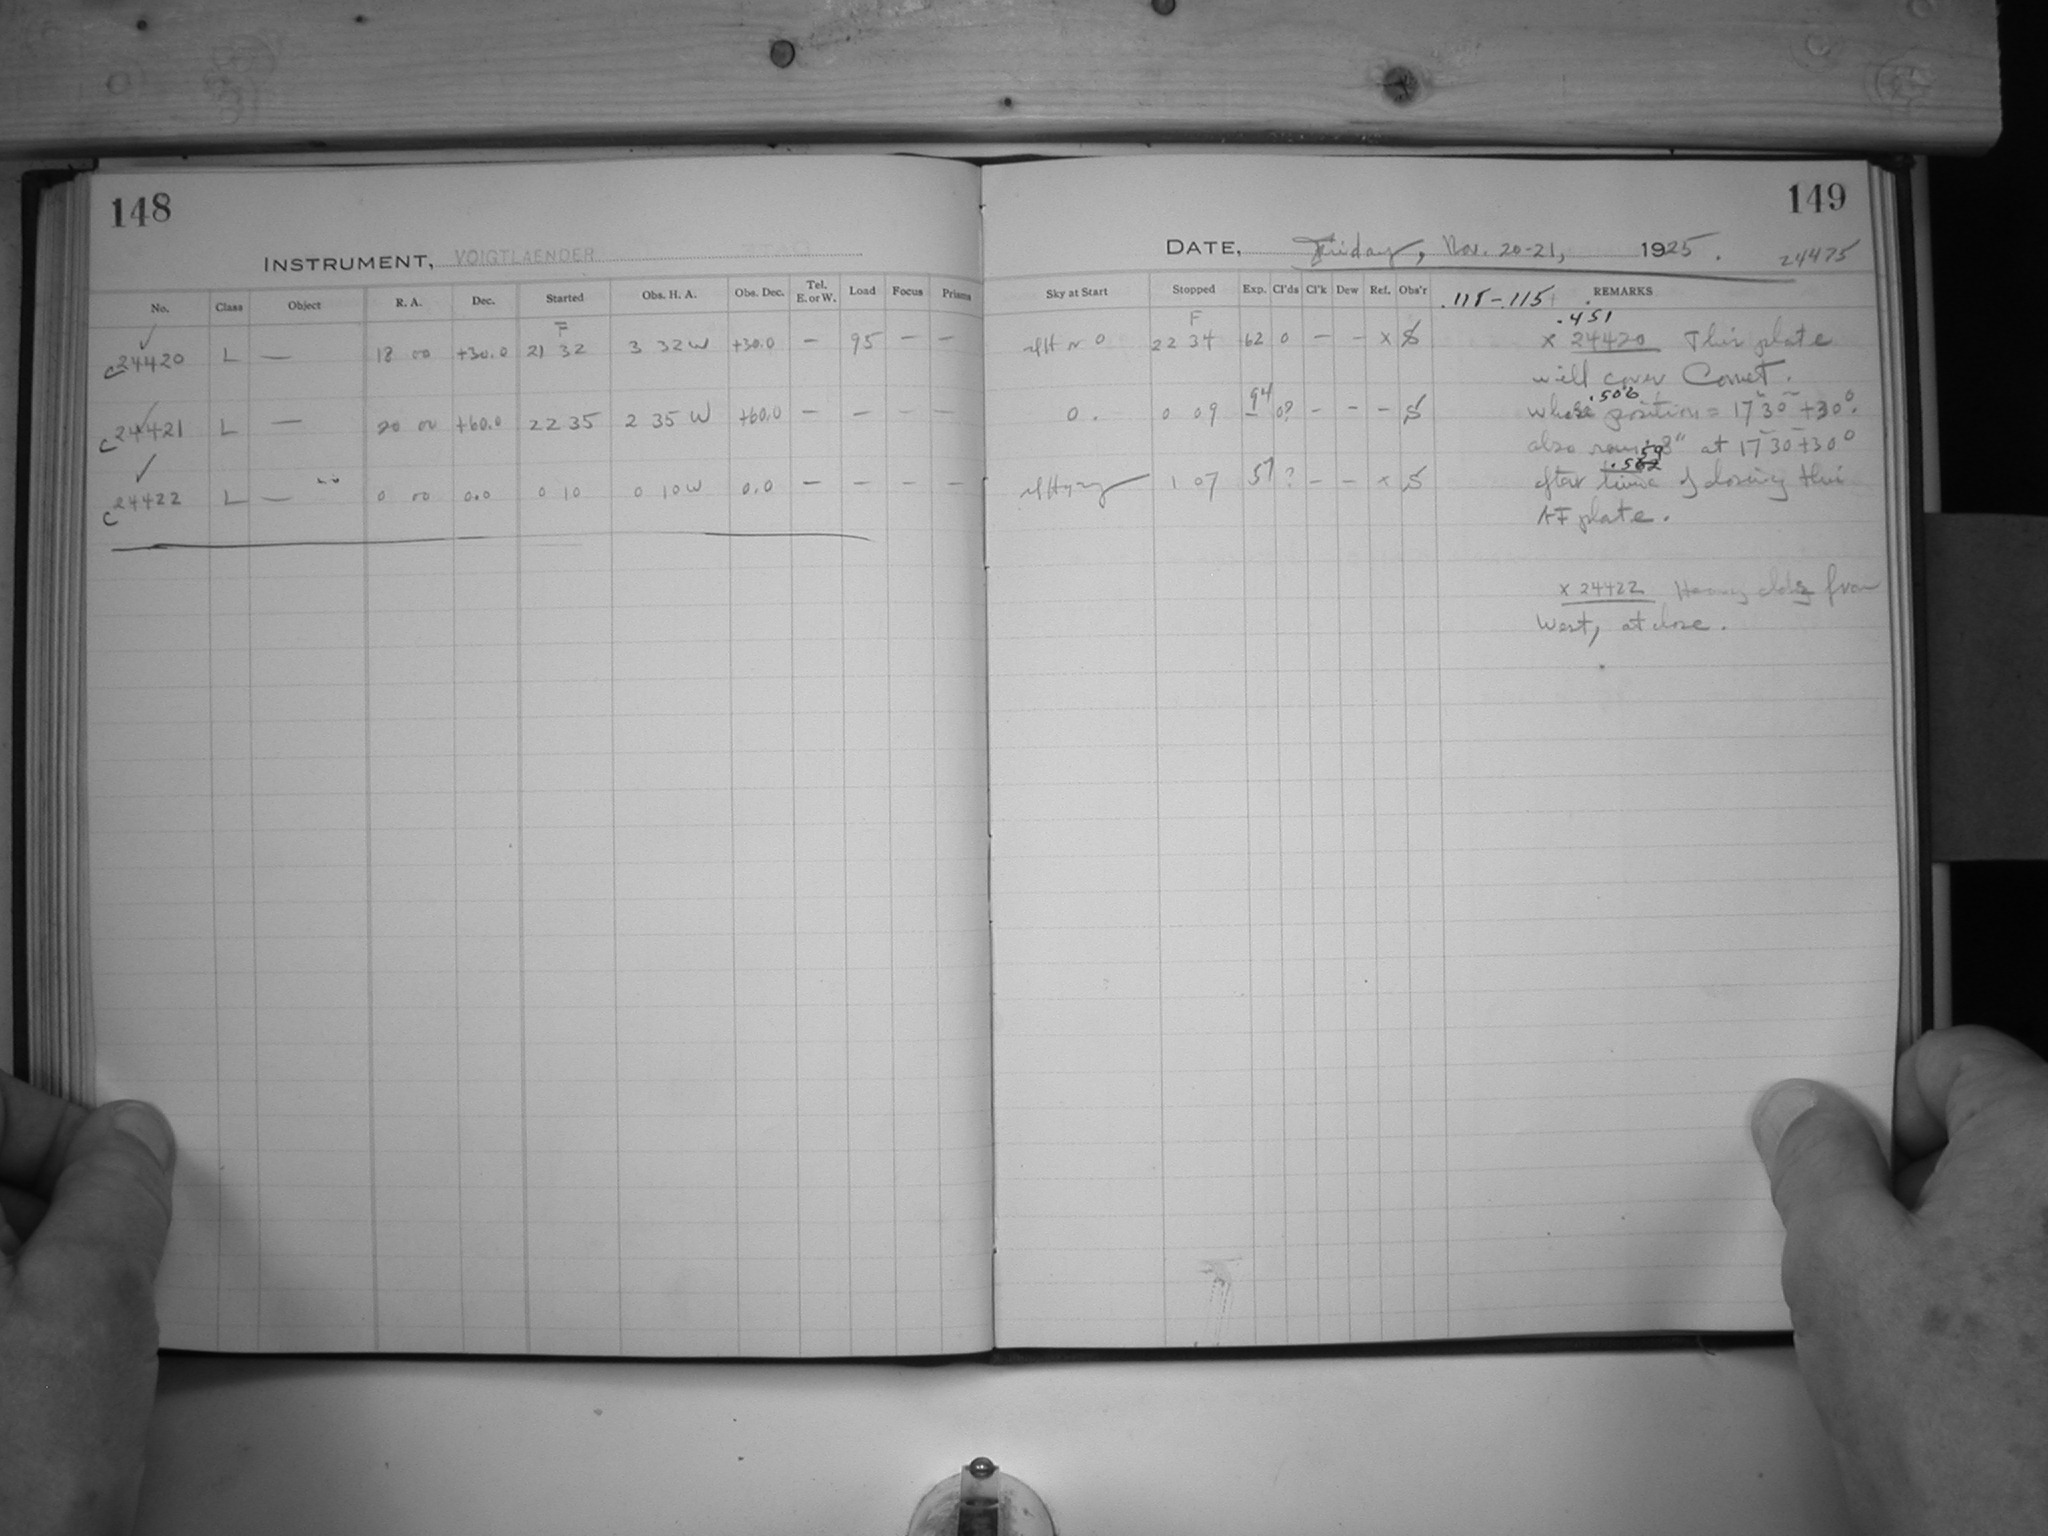 148
INSTRUMENT, VOIGTLAENDER
No. Class Object R. A. Dec. Started Obs. H. A. Obs. Dec. Tel. E. or W. Load Focus Prisms
F
c24420 L — 18 00 +30.0 21 32 3 32 W +30.0 — 95 — —
c24421 L — 20 00 +60.0 22 35 2 35 W +60.0 — — — —
c24422 L — 0 00 0.0 0 10 0 10 W 0.0 — — — —
149
DATE, Friday, Nov. 20-21, 1925. 24475
Sky at Start Stopped Exp. Cl'ds Cl'k Dew Ref. Obs'r REMARKS
.115-.115+
F .451
22 34 62 0 — — x S x 24420 This plate
will cover Comet.
.506
0. 0 09 94 0? — — — S whose position = 17 30 +30°.
also 8" at 17 30 +30°
1 07 57 ? — — x S after time of closing this
AF plate.
x 24422 Heavy clds from
West, at close.